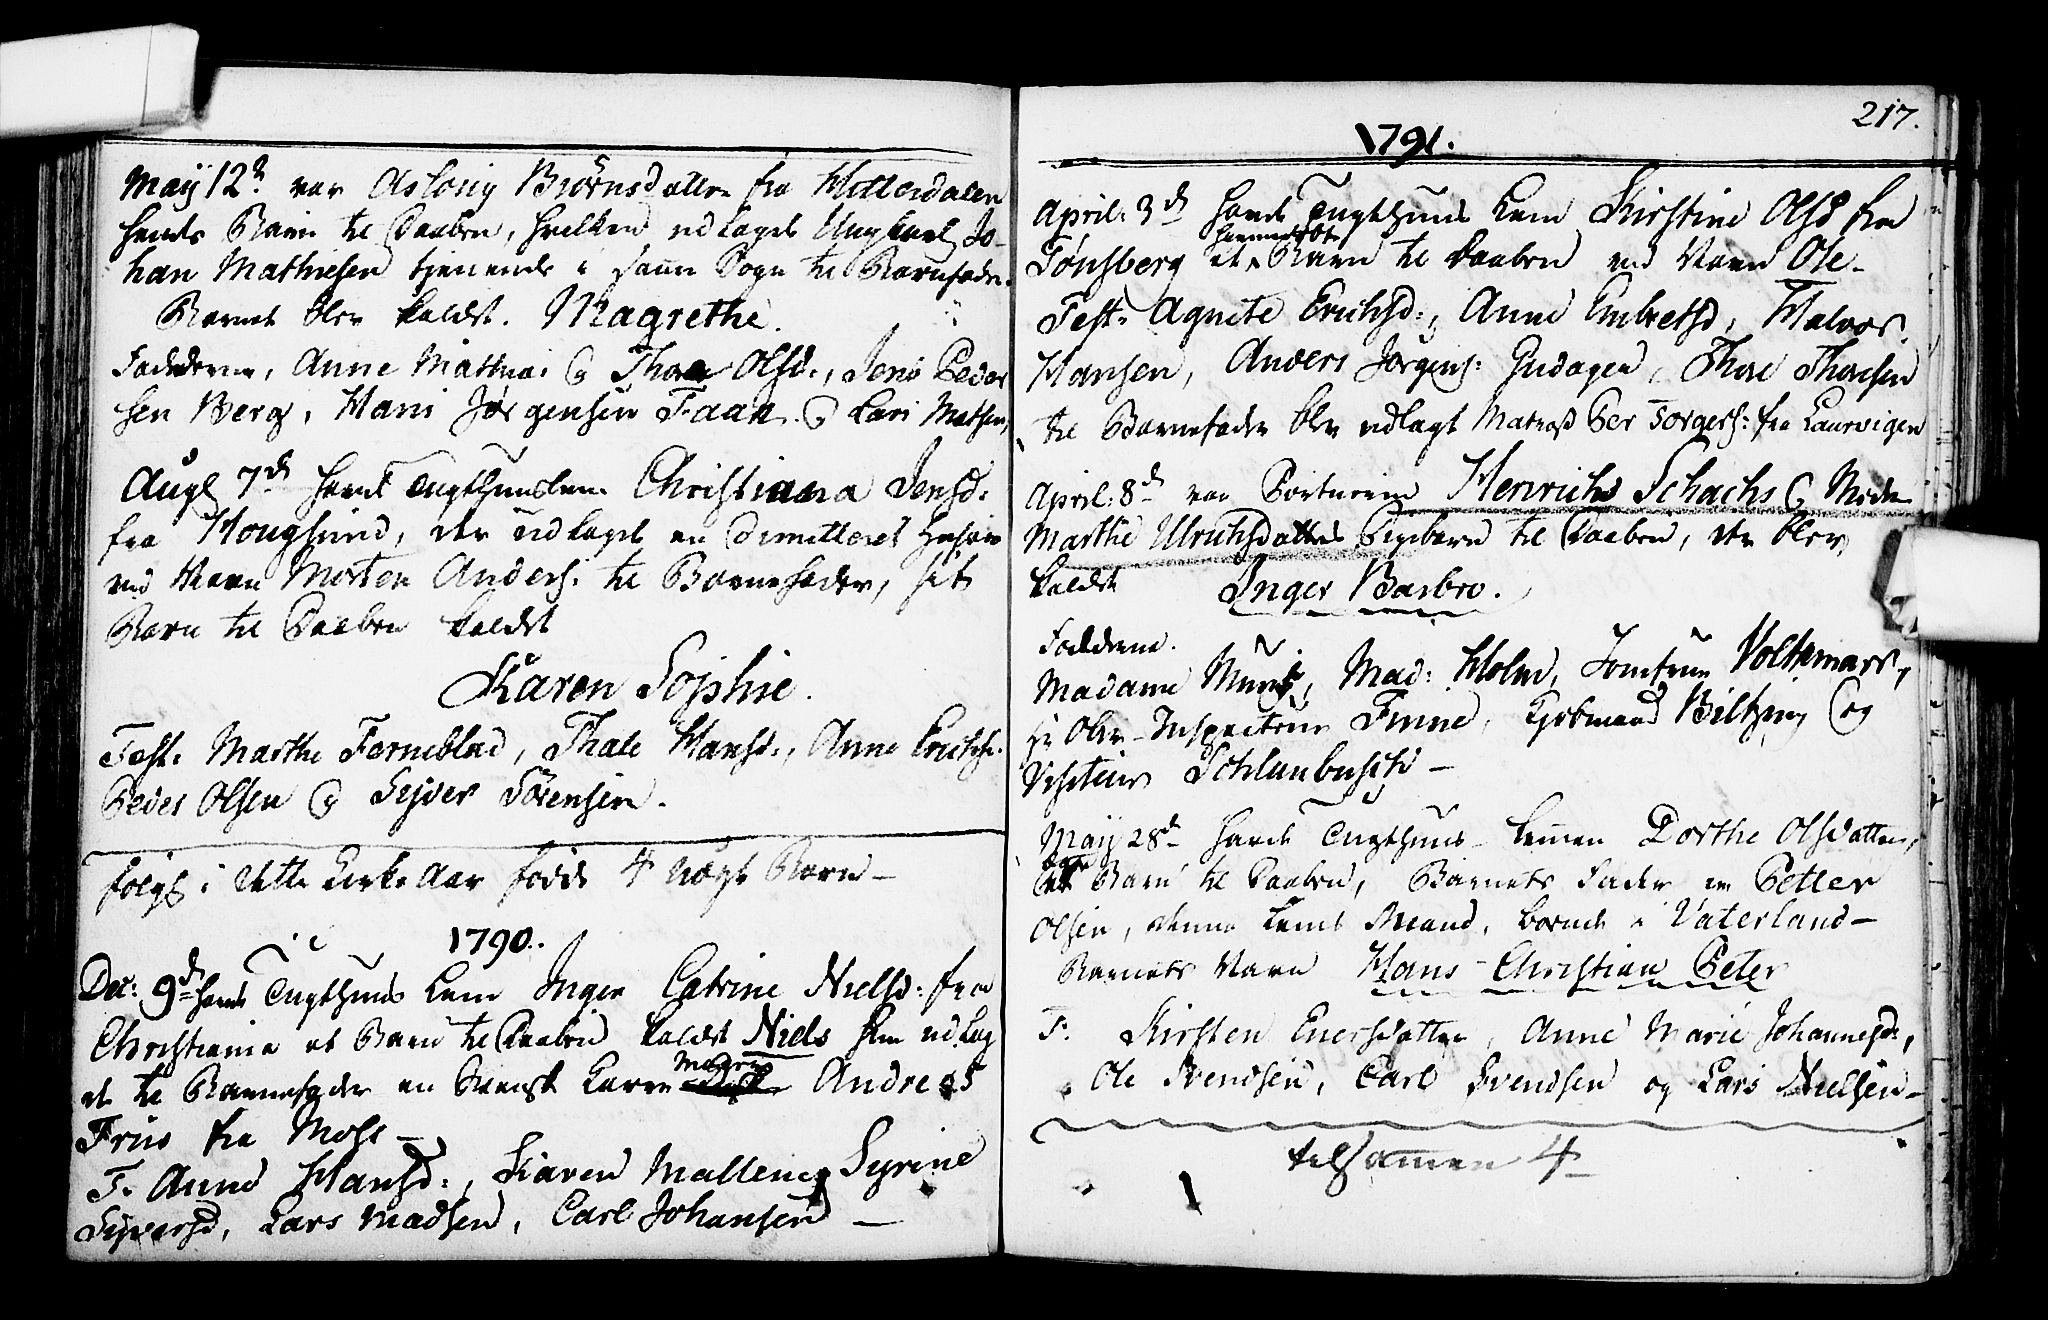 May 12te var Asloug Biörnsdatter fra Hitterdalen
hendes Barn til Daaben, hvilken udlagde Ungkarl Jo-
han Mathiesen tjenende i samme Sogn til Barnefader.
Barnet blev kaldet. Magrethe.
Fadderne, Anne Mathia: og Thore Olsd:, Jens Peder
sen Berg, Hans Jørgensen Faan og Lars Mathsen,
Augs 7de havde Tugthuuslem Christiana Jensd:
fra Hougsund, der udlagde en dimitteret
ved Navn Morten Anders: til Barnefader, sit
Barn til Daaben kaldet
Karen Sophie.
Test. Marthe Ferneblad, Thale Hansd:, Anne Erichs:
Peder Olsen og Syver Sörensen.
følgl i dette Kirke Aar født 4 uægte Børn —
1790.
Dec: 9de havde Tugthuus Lem Inger Catrine Nielsd: fra
Christiania et Barn til Daaben kaldet Niels hun udlag
de til Barnefader en Svensk Karl Andreas
Friis fra Moss —
F. Anne Hansd:, Karen Mallene, Syrine
Syversd, Lars Madsen, Carl Johansen —
217.
1791.
April: 3de havde Tugthuus Lem Kirstine Olsd fra
Tønsberg et hiemmedøbt Barn til Daaben ved Navn Ole-
Test. Agnete Erichsd:, Anne Embretsd, Halvor
Hansen, Anders Jørgens: Gudagen, Thore Thoresen
til Barnefader blev udlagt Matros Per Torgers: fra Laurvigen
April: 8de var Portneren Henrich Schachs og Moder
Marthe Ulrichsdatters Pigebarn til Daaben, der blev
kaldet Inger Barbro.
Fadderne.
Madame Munk, Mad: Holm, Jomfrue Volkmars,
Hr Ober-Inspecteur Finne, Kjøbmand Biltzing og
Visiteur Schlanbusch —
May 28de havde Tugthuus-Lemmen Dorthe Olsdatter,
Barn til Daaben, Barnets Fader er Petter
Olsen, denne Lems Mand, boende i Vaterland —
Barnets Navn Hans-Christian Peter
F: Kirsten Enersdatter, Anne Marie Johannesd:,
Ole Svendsen, Carl Svendsen og Lars Nielsen —
tilsammen 4